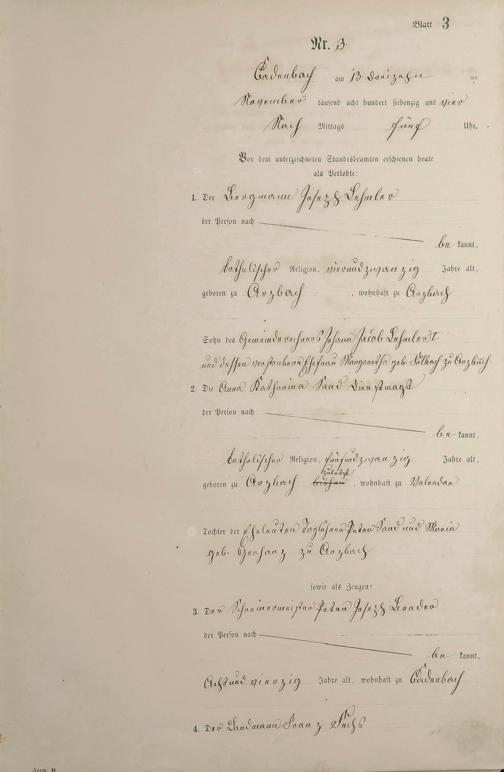 Blatt 3
Nr. 3
Cadenbach am 13 Dreizehn ten
November tausend acht hundert siebenzig und vier
Nach Mittags fünf Uhr.
Vor dem unterzeichneten Standesbeamten erschienen heute
als Verlobte:
1. Der Bergmann Joseph Lehmler
der Person nach
be kannt,
katholischer Religion, vierundzwanzig Jahre alt,
geboren zu Arzbach , wohnhaft zu Arzbach
Sohn des Gemeinderechners Johann Jacob Lehmler I
und dessen verstorbene Ehefrau Margaretha geb. zu Arzbach
2. Die Anna Katharina Sand Dienstmagd
der Person nach
be kannt,
katholischer Religion, fünfundzwanzig Jahre alt,
zuletzt
geboren zu Arzbach , wohnhaft zu Valendar
Tochter der Eheleuten Taglöhner Peter Sand und Maria
geb. Gerharz zu Arzbach
sowie als Zeugen:
3. Der Schreinermeister Peter Joseph
der Person nach
be kannt,
Achtundvierzig Jahre alt, wohnhaft zu Cadenbach
4. Der Landmann Franz Fuchs
Form. B.